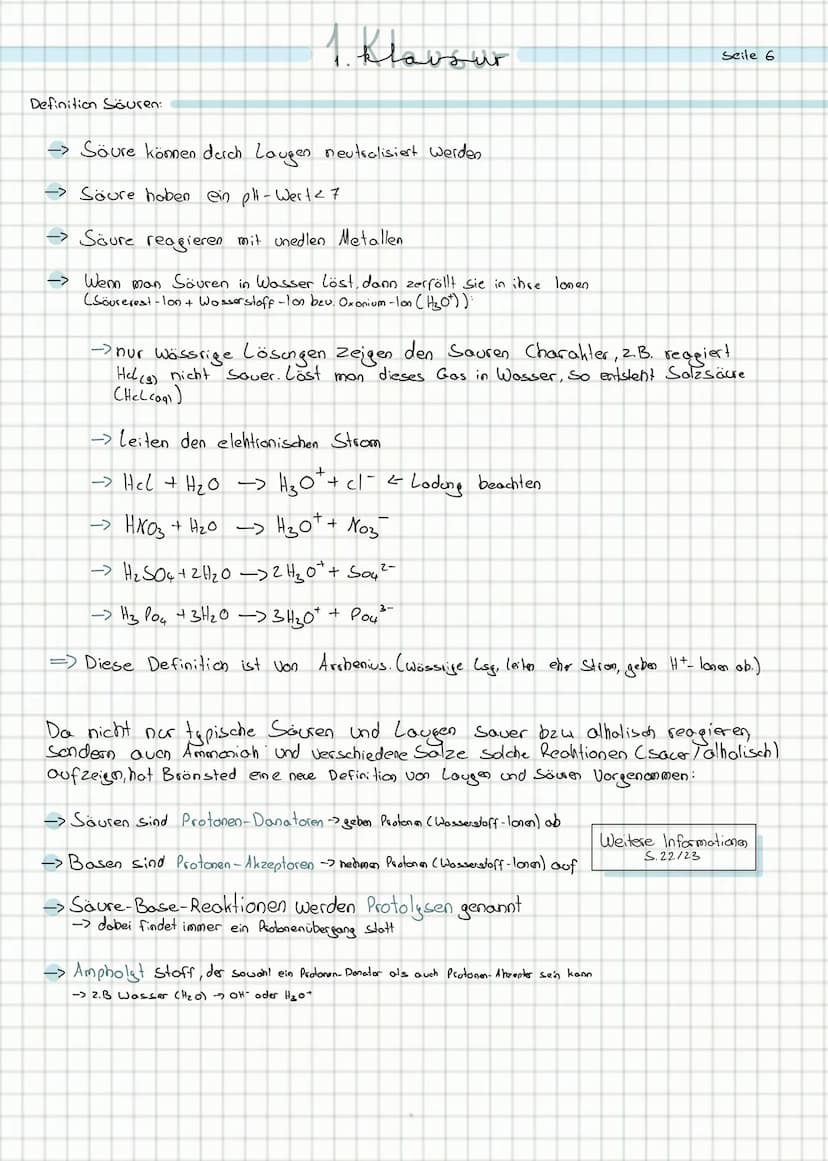 1. Klausur
Seite 6
Definition Säuren:
→ Säure können durch Laugen neutralisiert werden
→ Säure haben ein pH-Wert < 7
→ Säure reagieren mit unedlen Metallen
→ Wenn man Säuren in Wasser löst, dann zerfällt sie in ihre Ionen
(Säurerest-Ion + Wasserstoff-Ion bzw. Oxonium-Ion (H₃O⁺)):
→ nur wässrige Lösungen zeigen den Sauren Charakter, z.B. reagiert
HCl(g) nicht sauer. Löst man dieses Gas in Wasser, so entsteht Salzsäure
(HCl(aq))
→ Leiten den elektronischen Strom
→ HCl + H₂O → H₃O⁺ + Cl⁻ ← Ladung beachten
→ HNO₃ + H₂O → H₃O⁺ + NO₃⁻
→ H₂SO₄ + 2H₂O → 2H₃O⁺ + SO₄²⁻
→ H₃PO₄ + 3H₂O → 3H₃O⁺ + PO₄³⁻
⇒ Diese Definition ist von Arrhenius. (Wässrige Lsg, leiten ehr Strom, geben H⁺-Ionen ab.)
Da nicht nur typische Säuren und Laugen sauer bzw alkalisch reagieren,
sondern auch Ammoniak und verschiedene Salze solche Reaktionen (sauer/alkalisch)
aufzeigen, hat Brönsted eine neue Definition von Laugen und Säuren vorgenommen:
→ Säuren sind Protonen-Donatoren → geben Protonen (Wasserstoff-Ionen) ab
Weitere Informationen
S. 22/23
→ Basen sind Protonen-Akzeptoren → nehmen Protonen (Wasserstoff-Ionen) auf
→ Säure-Base-Reaktionen werden Protolysen genannt
→ dabei findet immer ein Protonenübergang statt
→ Ampholyt Stoff, der sowohl ein Protonen-Donator als auch Protonen-Akzeptor sein kann
→ z.B Wasser (H₂O) → OH⁻ oder H₃O⁺